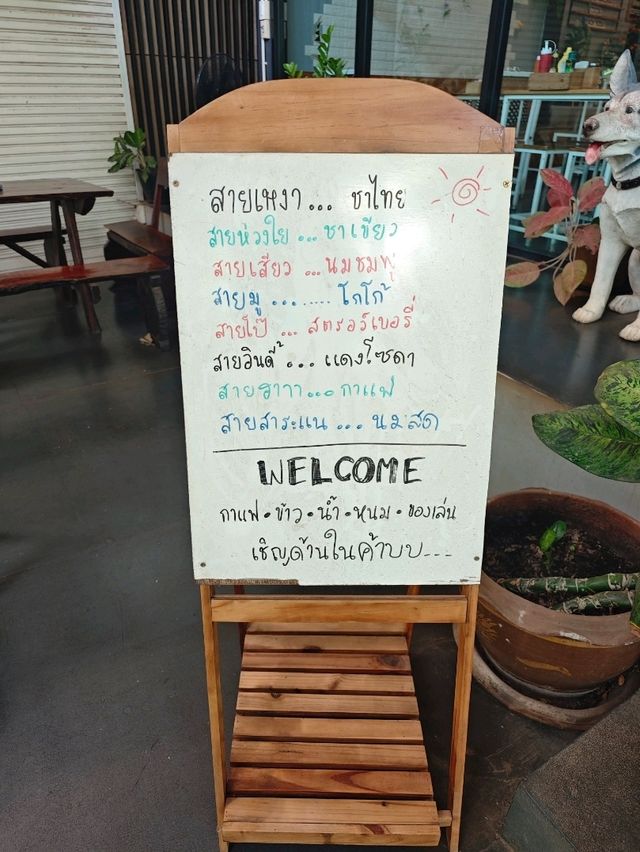 สายเหงา... ชาไทย
สายห่วงใย... ชาเขียว
สายเสียว ...นมชมพู
สายมู ......... โกโก้
สายโป๊ ... สตรอว์เบอรี่
สายอินดี้... แดงโซดา
... กาแฟ
สายสาระแน ... นมสด
WELCOME
กาแฟ • ข้าว • น้ำ • หนม • ของเล่น
เชิญด้านในค้าบบ---